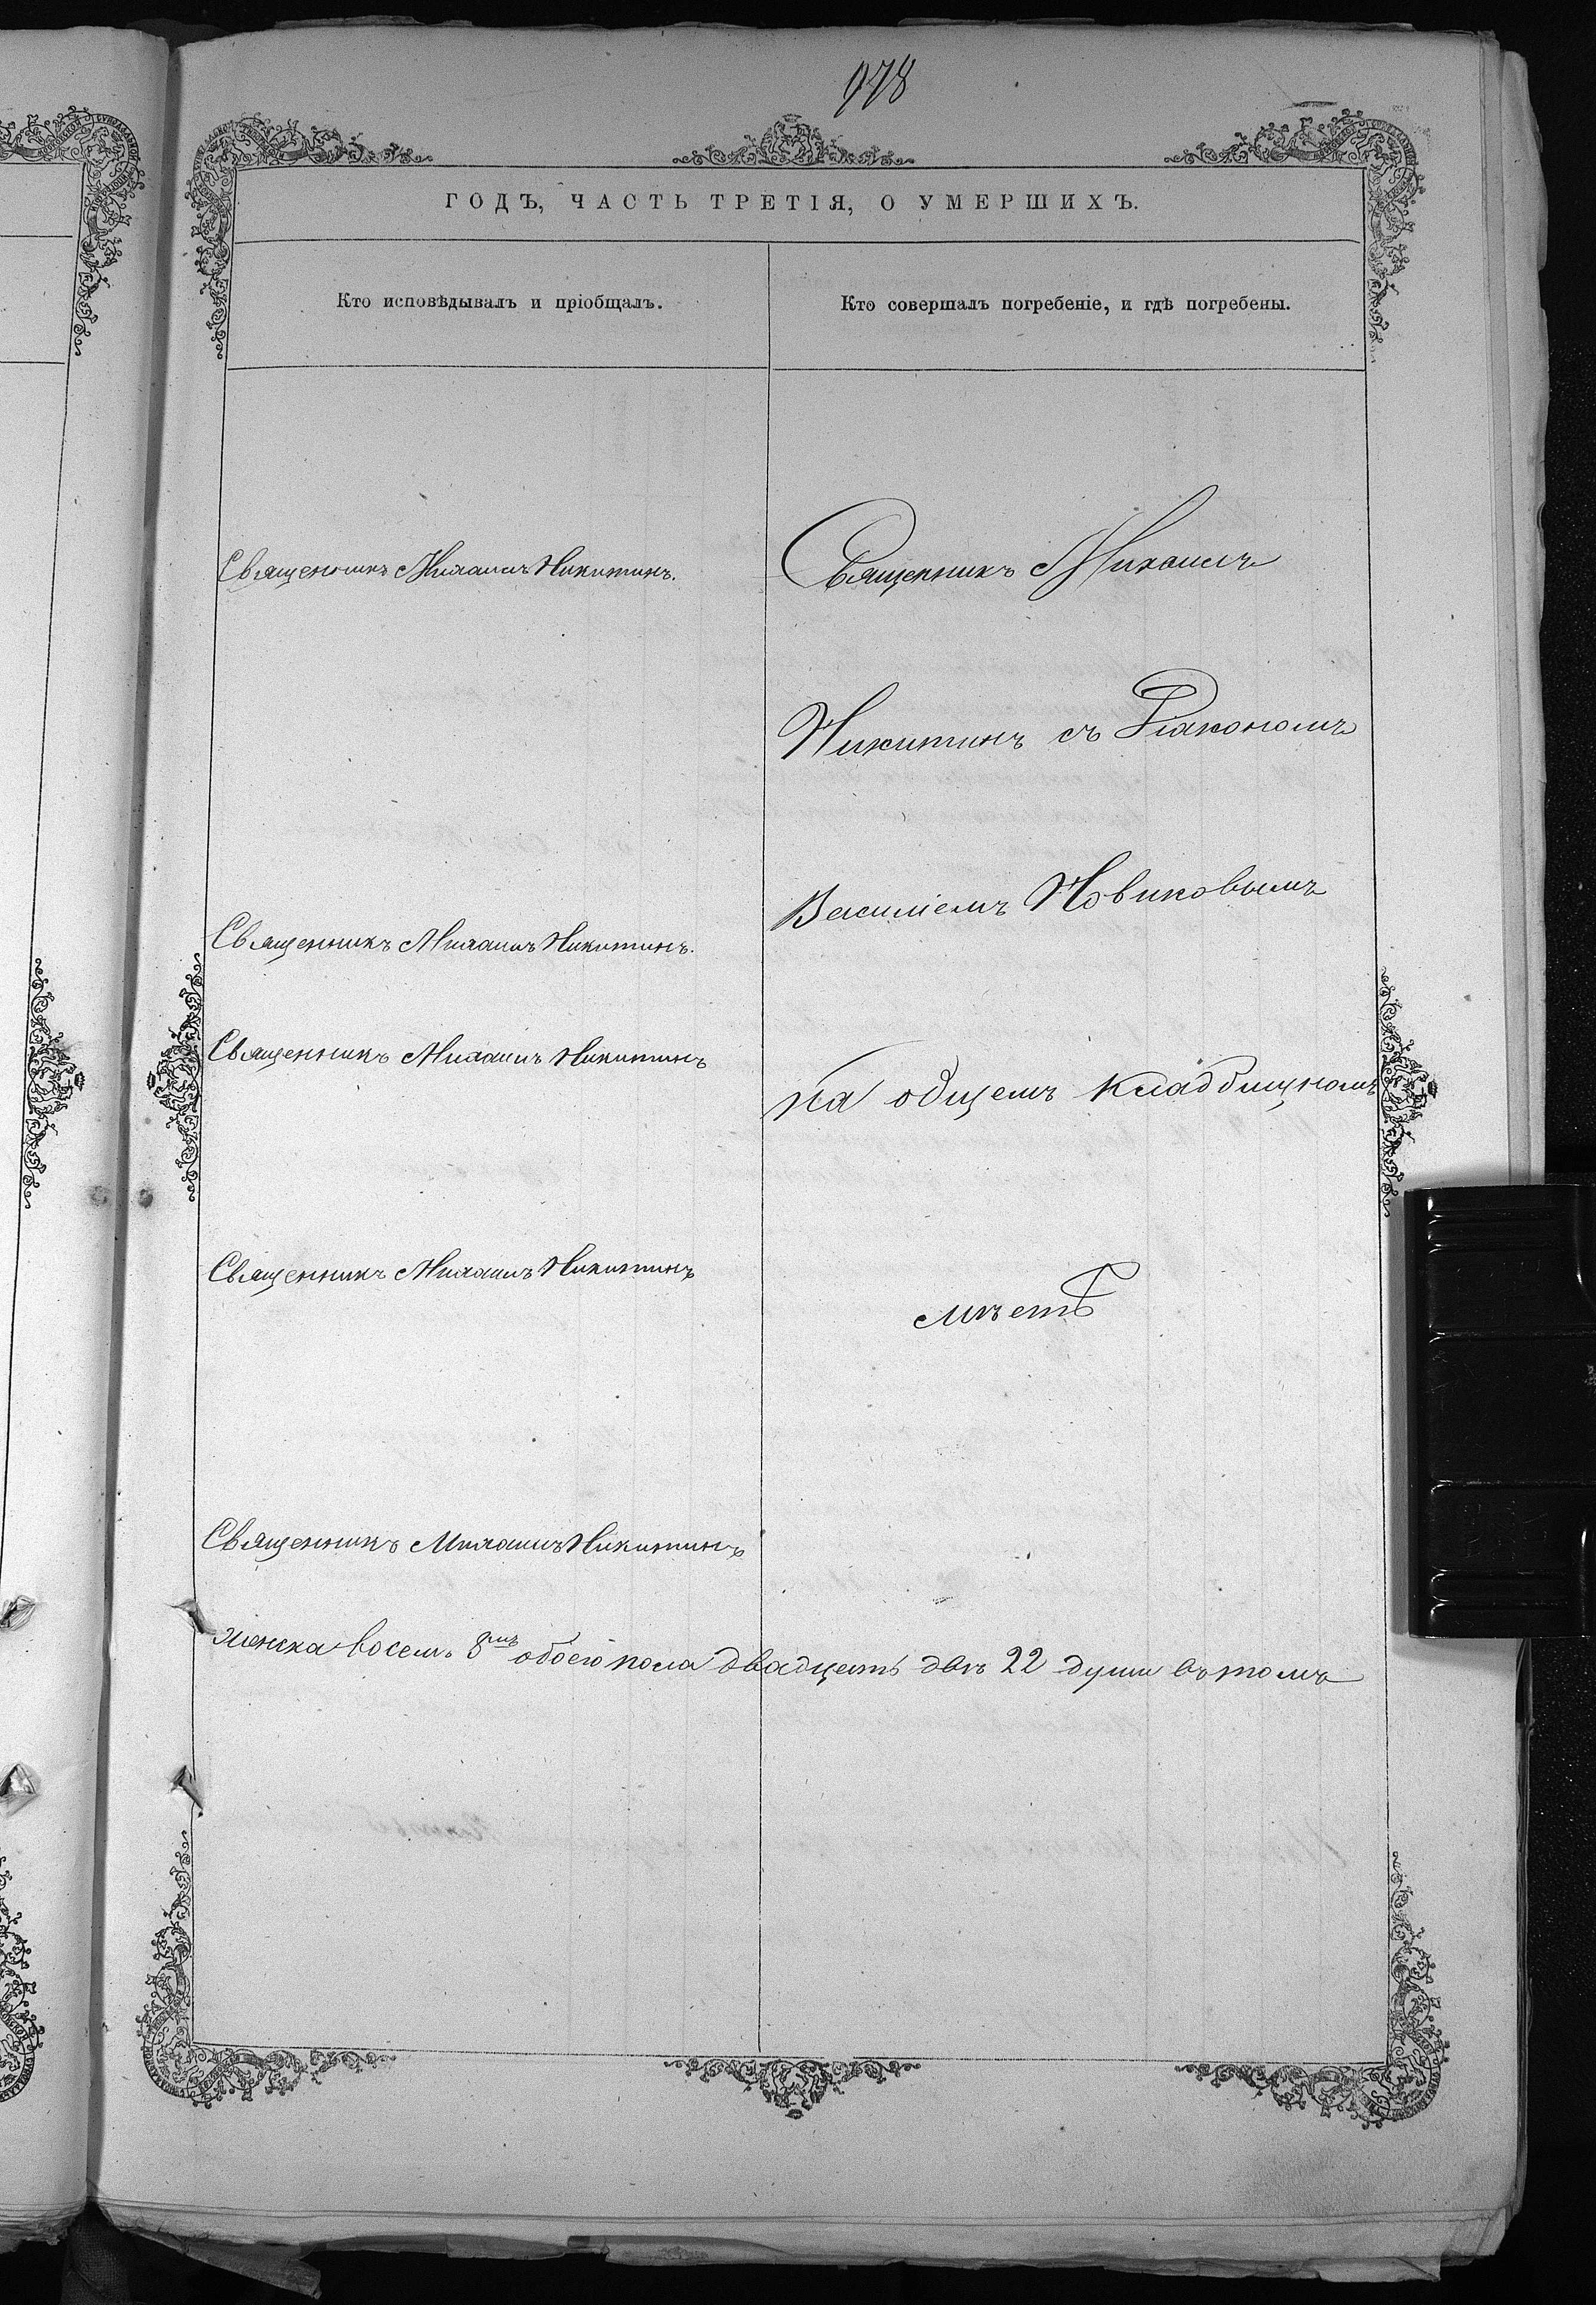 978
ГОДЪ, ЧАСТЬ ТРЕТІЯ, О УМЕРШИХЪ.
Кто исповѣдывалъ и пріобщалъ.
Кто совершалъ погребеніе, и гдѣ погребены.
Священникъ Михаилъ Никитинъ.
Священникъ Михаилъ Никитинъ.
Священникъ Михаилъ Никитинъ
Священникъ Михаилъ Никитинъ
Священникъ Михаилъ Никитинъ
Священникъ Михаилъ
Никитинъ съ Діакономъ
Василіемъ Новиковымъ
на общемъ кладбищномъ
мѣстѣ
женска восемь 8мь обоего пола двадцать двѣ 22 души въ томъ